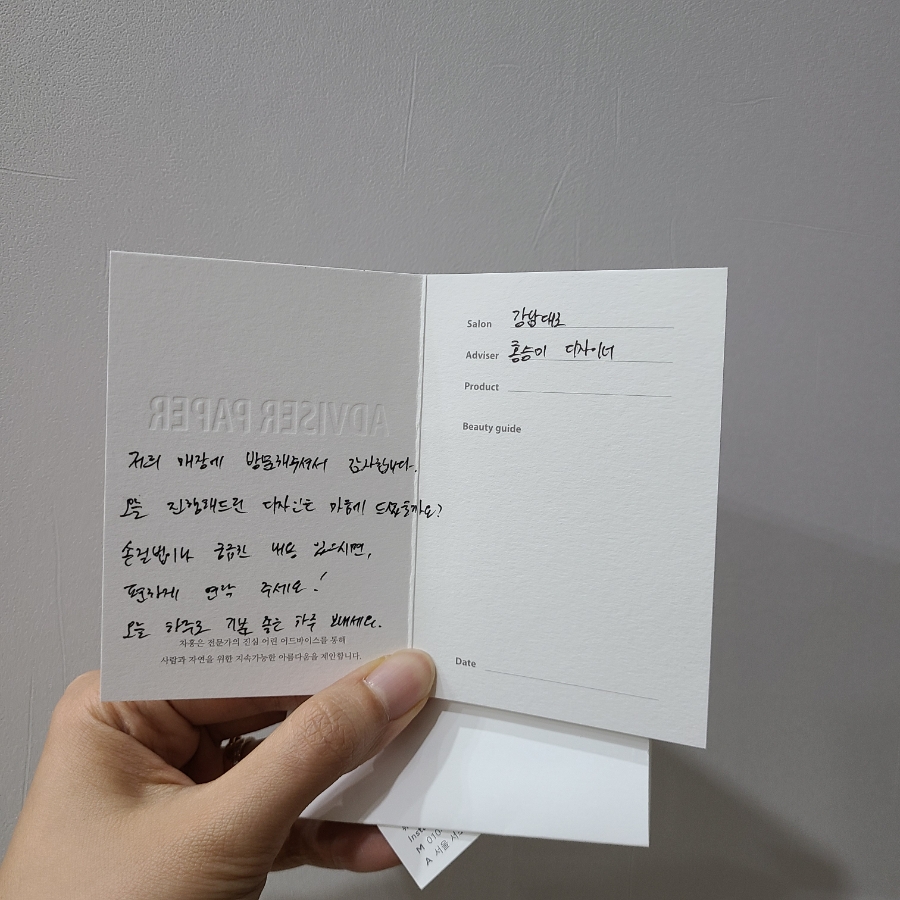 ADVISER PAPER
저희 매장에 방문해주셔서 감사합니다.
오늘 진행해드린 디자인은 마음에 드셨을까요?
손질법이나 궁금한 내용 있으시면,
편하게 연락 주세요!
오늘 하루도 기분 좋은 하루 보내세요.
차홍은 전문가의 진심 어린 어드바이스를 통해
사람과 자연을 위한 지속가능한 아름다움을 제안합니다.
Salon 강남대로
Adviser 홍승미 디자이너
Product
Beauty guide
Date
Inst
M 010
A 서울 서